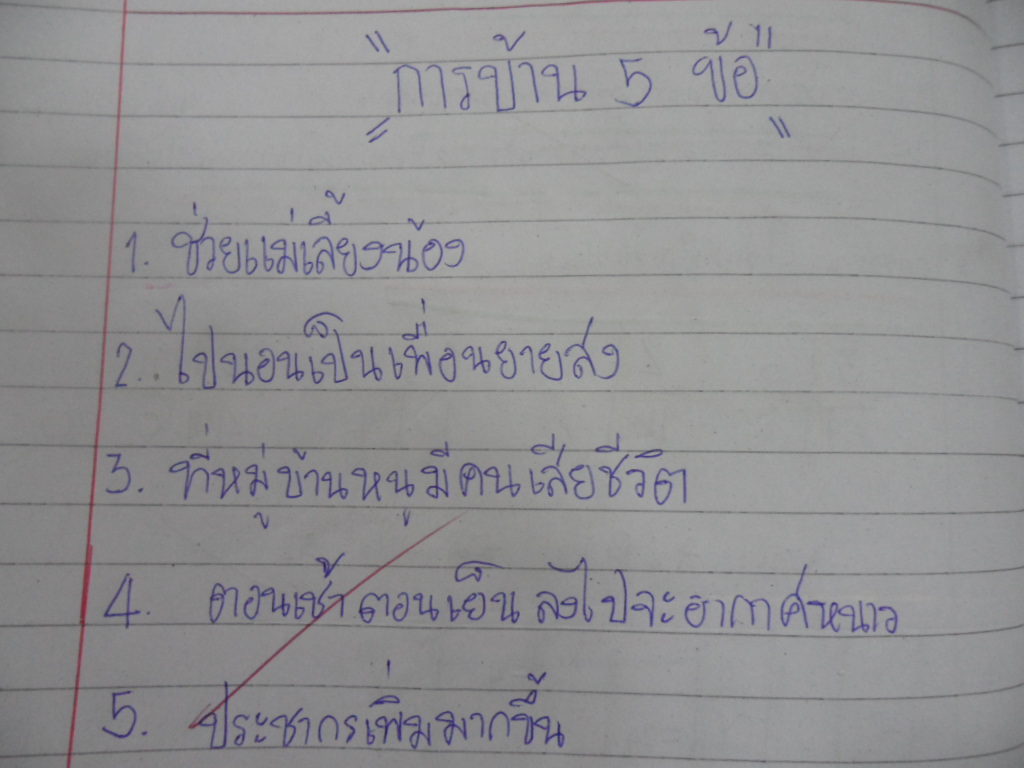 "การบ้าน 5 ข้อ"
1. ช่วยแม่เลี้ยงน้อง
2. ไปนอนเป็นเพื่อนยายสง
3. ที่หมู่บ้านหนูมีคนเสียชีวิต
4. ตอนเช้าตอนเย็นลงไปจะอากาศหนาว
5. ประชากรเพิ่มมากขึ้น